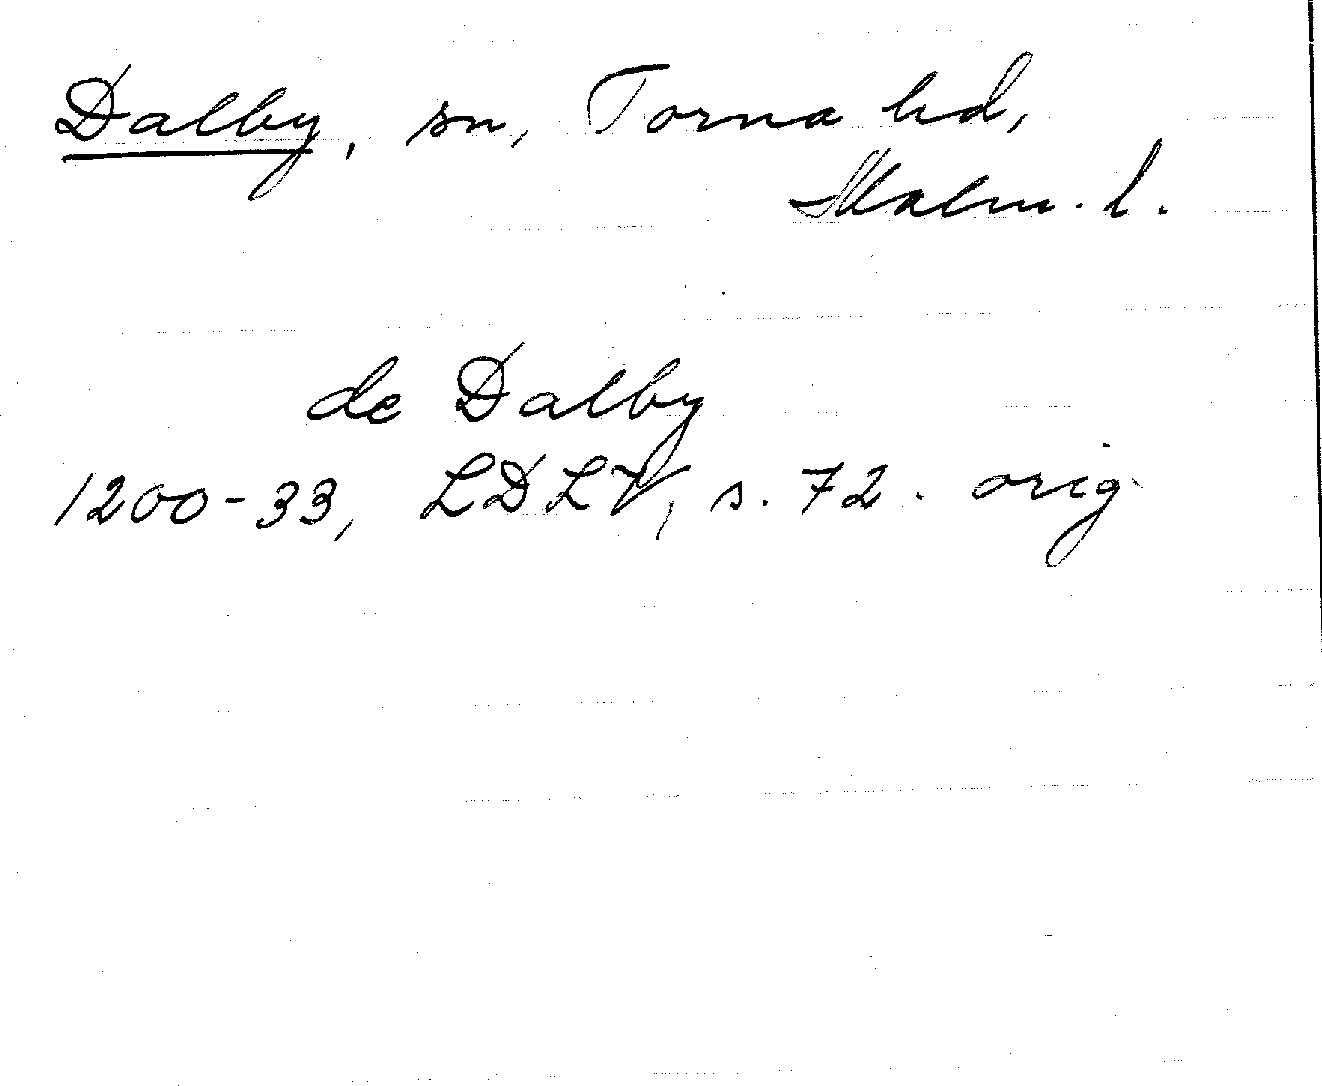 Dalby, sn, Torna hd,
Malm. l.
de Dalby
1200-33, LDLV, s. 72. orig.